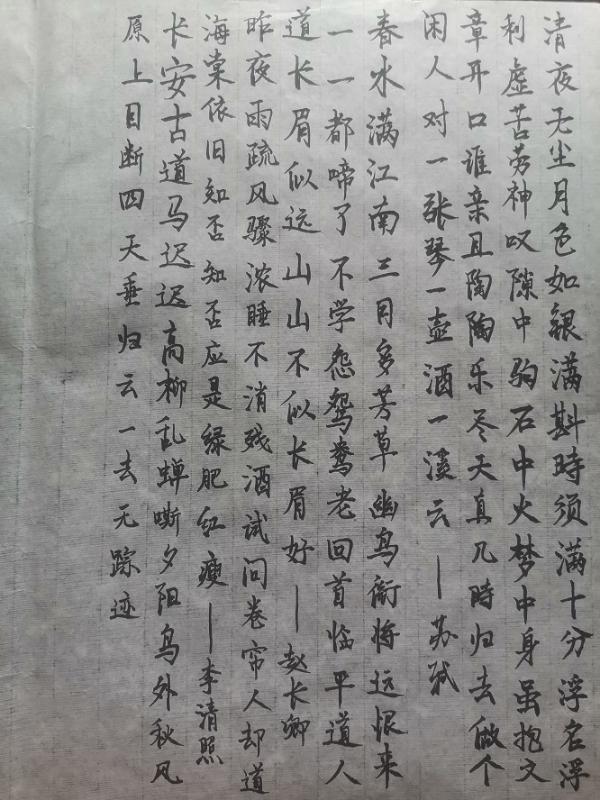 清夜无尘月色如银满斟時须满十分浮名浮
利虚苦劳神叹隙中驹石中火梦中身虽抱文
章开口谁亲且陶陶乐尽天真几時归去做个
闲人对一张琴一壶酒一溪云——苏轼
春水满江南三月多芳草幽鸟衔将远恨来
一一都啼了不学怨鸳鸯老回首临平道人
道长眉似远山山不似长眉好——赵长卿
昨夜雨疏风骤浓睡不消残酒试问卷帘人却道
海棠依旧知否知否应是绿肥红瘦——李清照
长安古道马迟迟高柳乱蝉嘶夕阳鸟外秋风
原上目断四天垂归云一去无踪迹